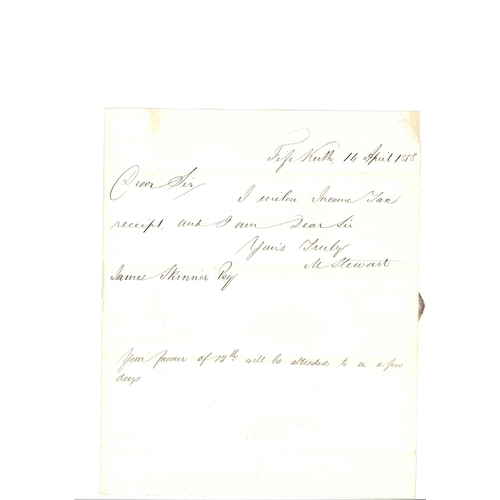 Fife Keith 14 April 1858
Dear Sir
I inclose Income Tax
receipt, and I am Dear Sir
Yours Truly
M Stewart
James Skinner Esq
Your favour of 12th will be attended to in a few
days